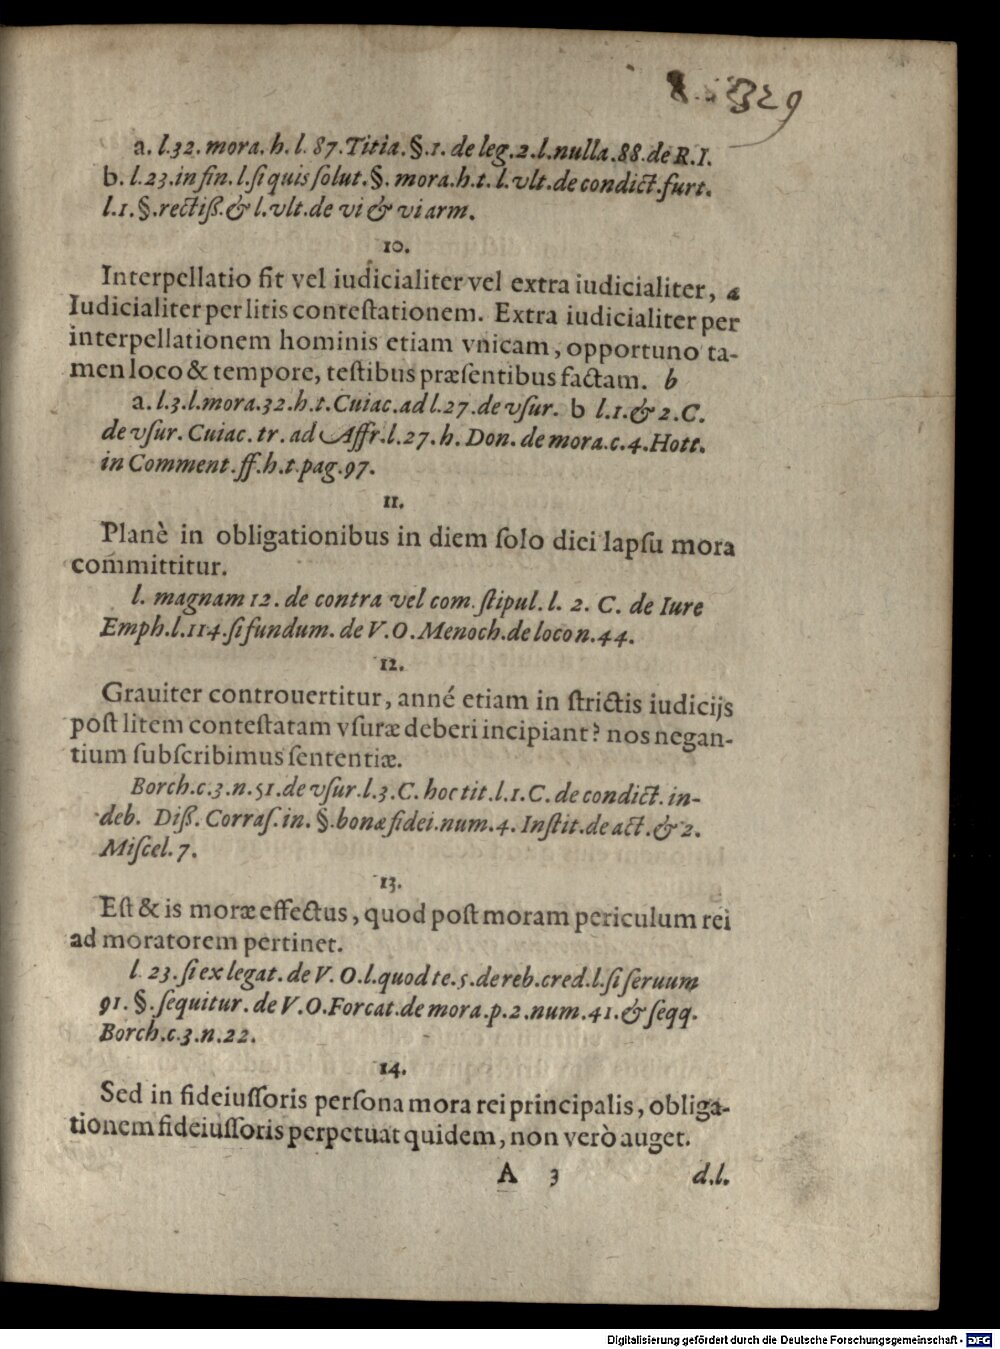 329
a. l.32. mora. h. l. 87. Titia. §. 1. de leg. 2. l. nulla. 88. de R. I.
b. l. 23. in fin. l. ſi quis ſolut. §. mora. h. t. l. vlt. de condict. furt.
l. 1. §. rectiß. & l. vlt. de vi & vi arm.
10.
Interpellatio fit vel iudicialiter vel extra iudicialiter, a
Iudicialiter per litis conteſtationem. Extra iudicialiter per
interpellationem hominis etiam vnicam, opportuno ta-
men loco & tempore, teſtibus præſentibus factam. b
a. l. 3. l. mora. 32. h. t. Cuiac. ad l. 27. de vſur. b l. 1. & 2. C.
de vſur. Cuiac. tr. ad Affr. l. 27. h. Don. de mora. c. 4. Hott.
in Comment. ff. h. t. pag. 97.
11.
Planè in obligationibus in diem ſolo diei lapſu mora
committitur.
l. magnam 12. de contra vel com. ſtipul. l. 2. C. de Iure
Emph. l. 114. ſi fundum. de V. O. Menoch. de loco n. 44.
12.
Grauiter controuertitur, anné etiam in ſtrictis iudicijs
poſt litem conteſtatam vſuræ deberi incipiant? nos negan-
tium ſubſcribimus ſententiæ.
Borch. c. 3. n. 51. de vſur. l. 3. C. hoc tit. l. 1. C. de condict. in-
deb. Diß. Corraſ. in. §. bonæ fidei. num. 4. Inſtit. de act. & 2.
Miſcel. 7.
13.
Eſt & is moræ effectus, quod poſt moram periculum rei
ad moratorem pertinet.
l. 23. ſi ex legat. de V. O. l. quod te. 5. de reb. cred. l. ſi ſeruum
91. §. ſequitur. de V. O. Forcat. de mora. p. 2. num. 41. & ſeqq.
Borch. c. 3. n. 22.
14.
Sed in fideiuſſoris perſona mora rei principalis, obliga-
tionem fideiuſſoris perpetuat quidem, non verò auget.
A 3 d. l.
Digitalisierung gefördert durch die Deutsche Forschungsgemeinschaft - DFG